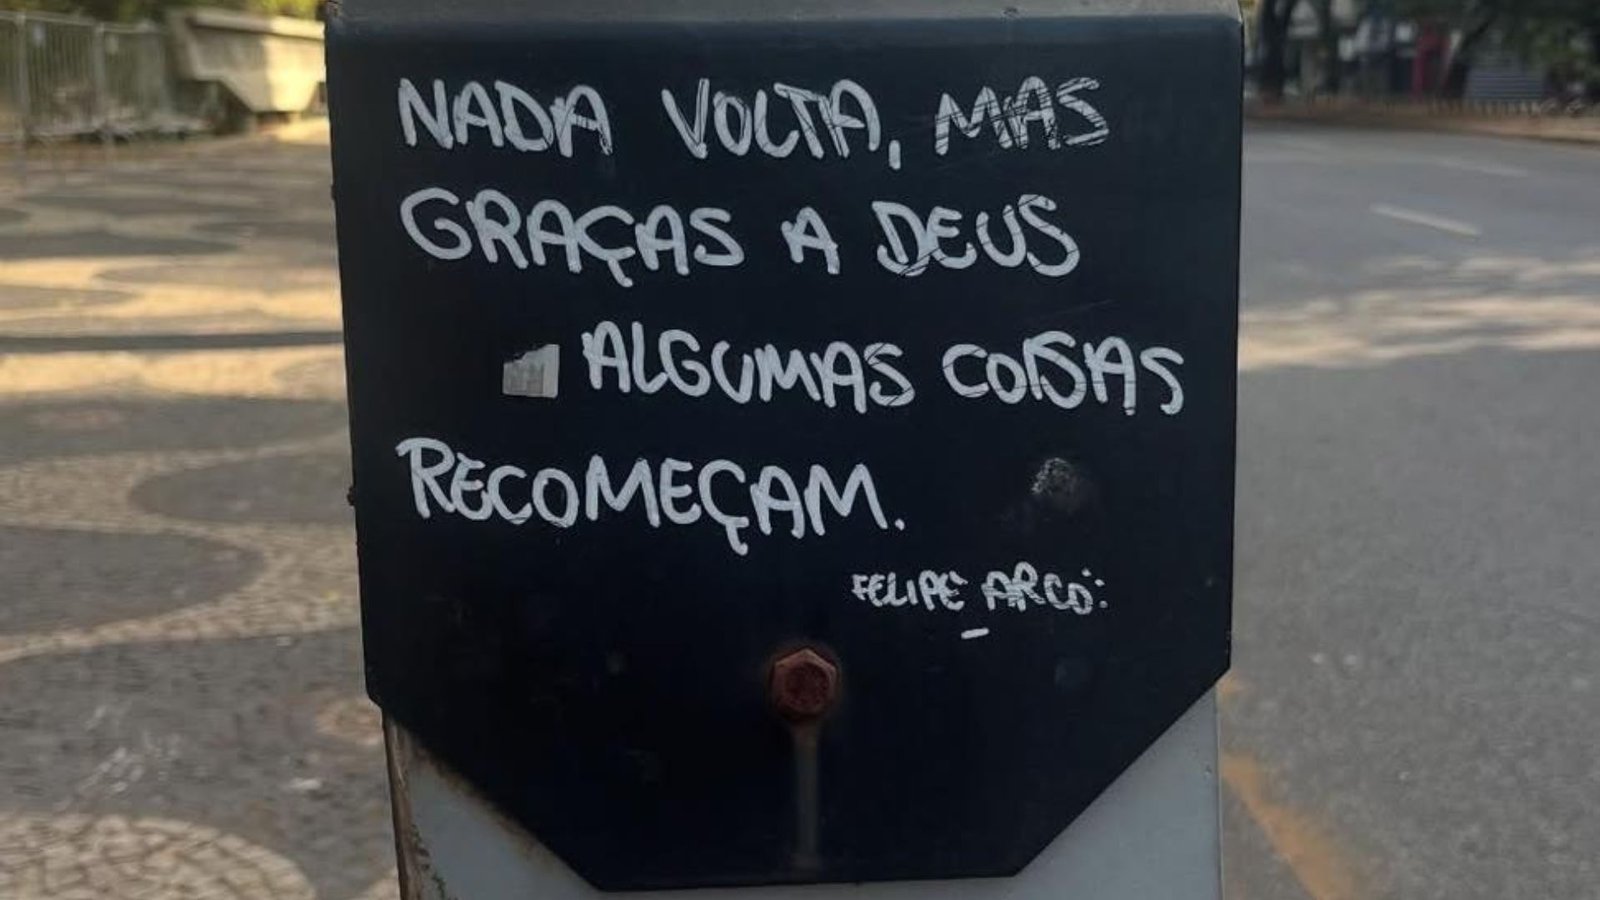 NADA VOLTA, MAS
GRAÇAS A DEUS
ALGUMAS COISAS
RECOMEÇAM.
FELIPE ARCO: